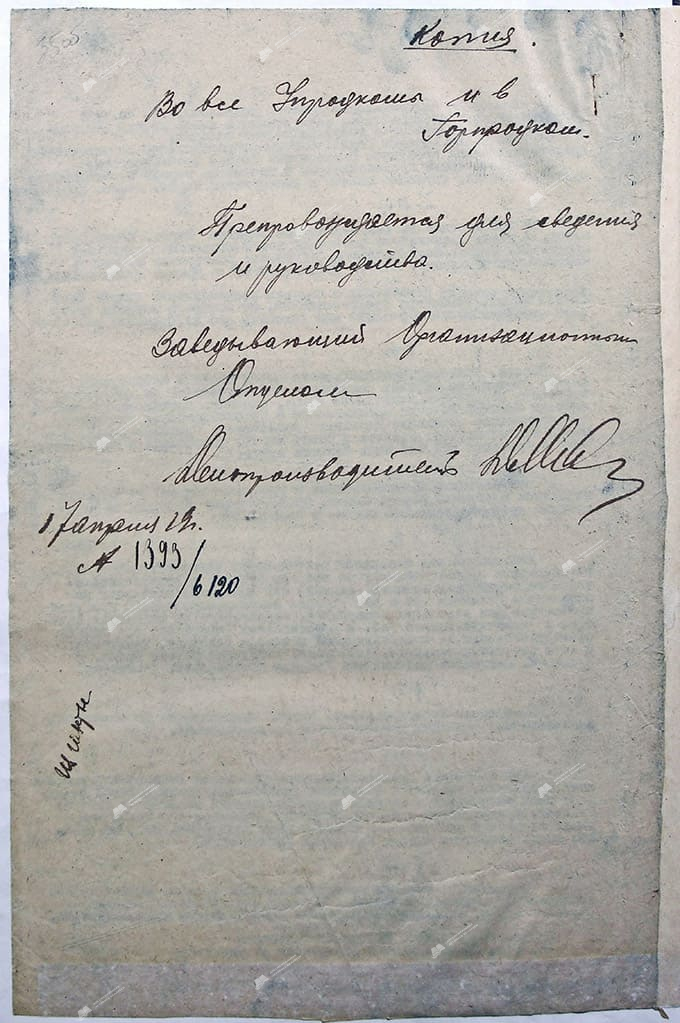 Копия.
Во все Упродкомы и в
Горпродком.
Препровождается для сведения
и руководства.
Заведывающий Организационным
Отделом
Делопроизводитель
17 апреля 19г.
№ 1393/6120